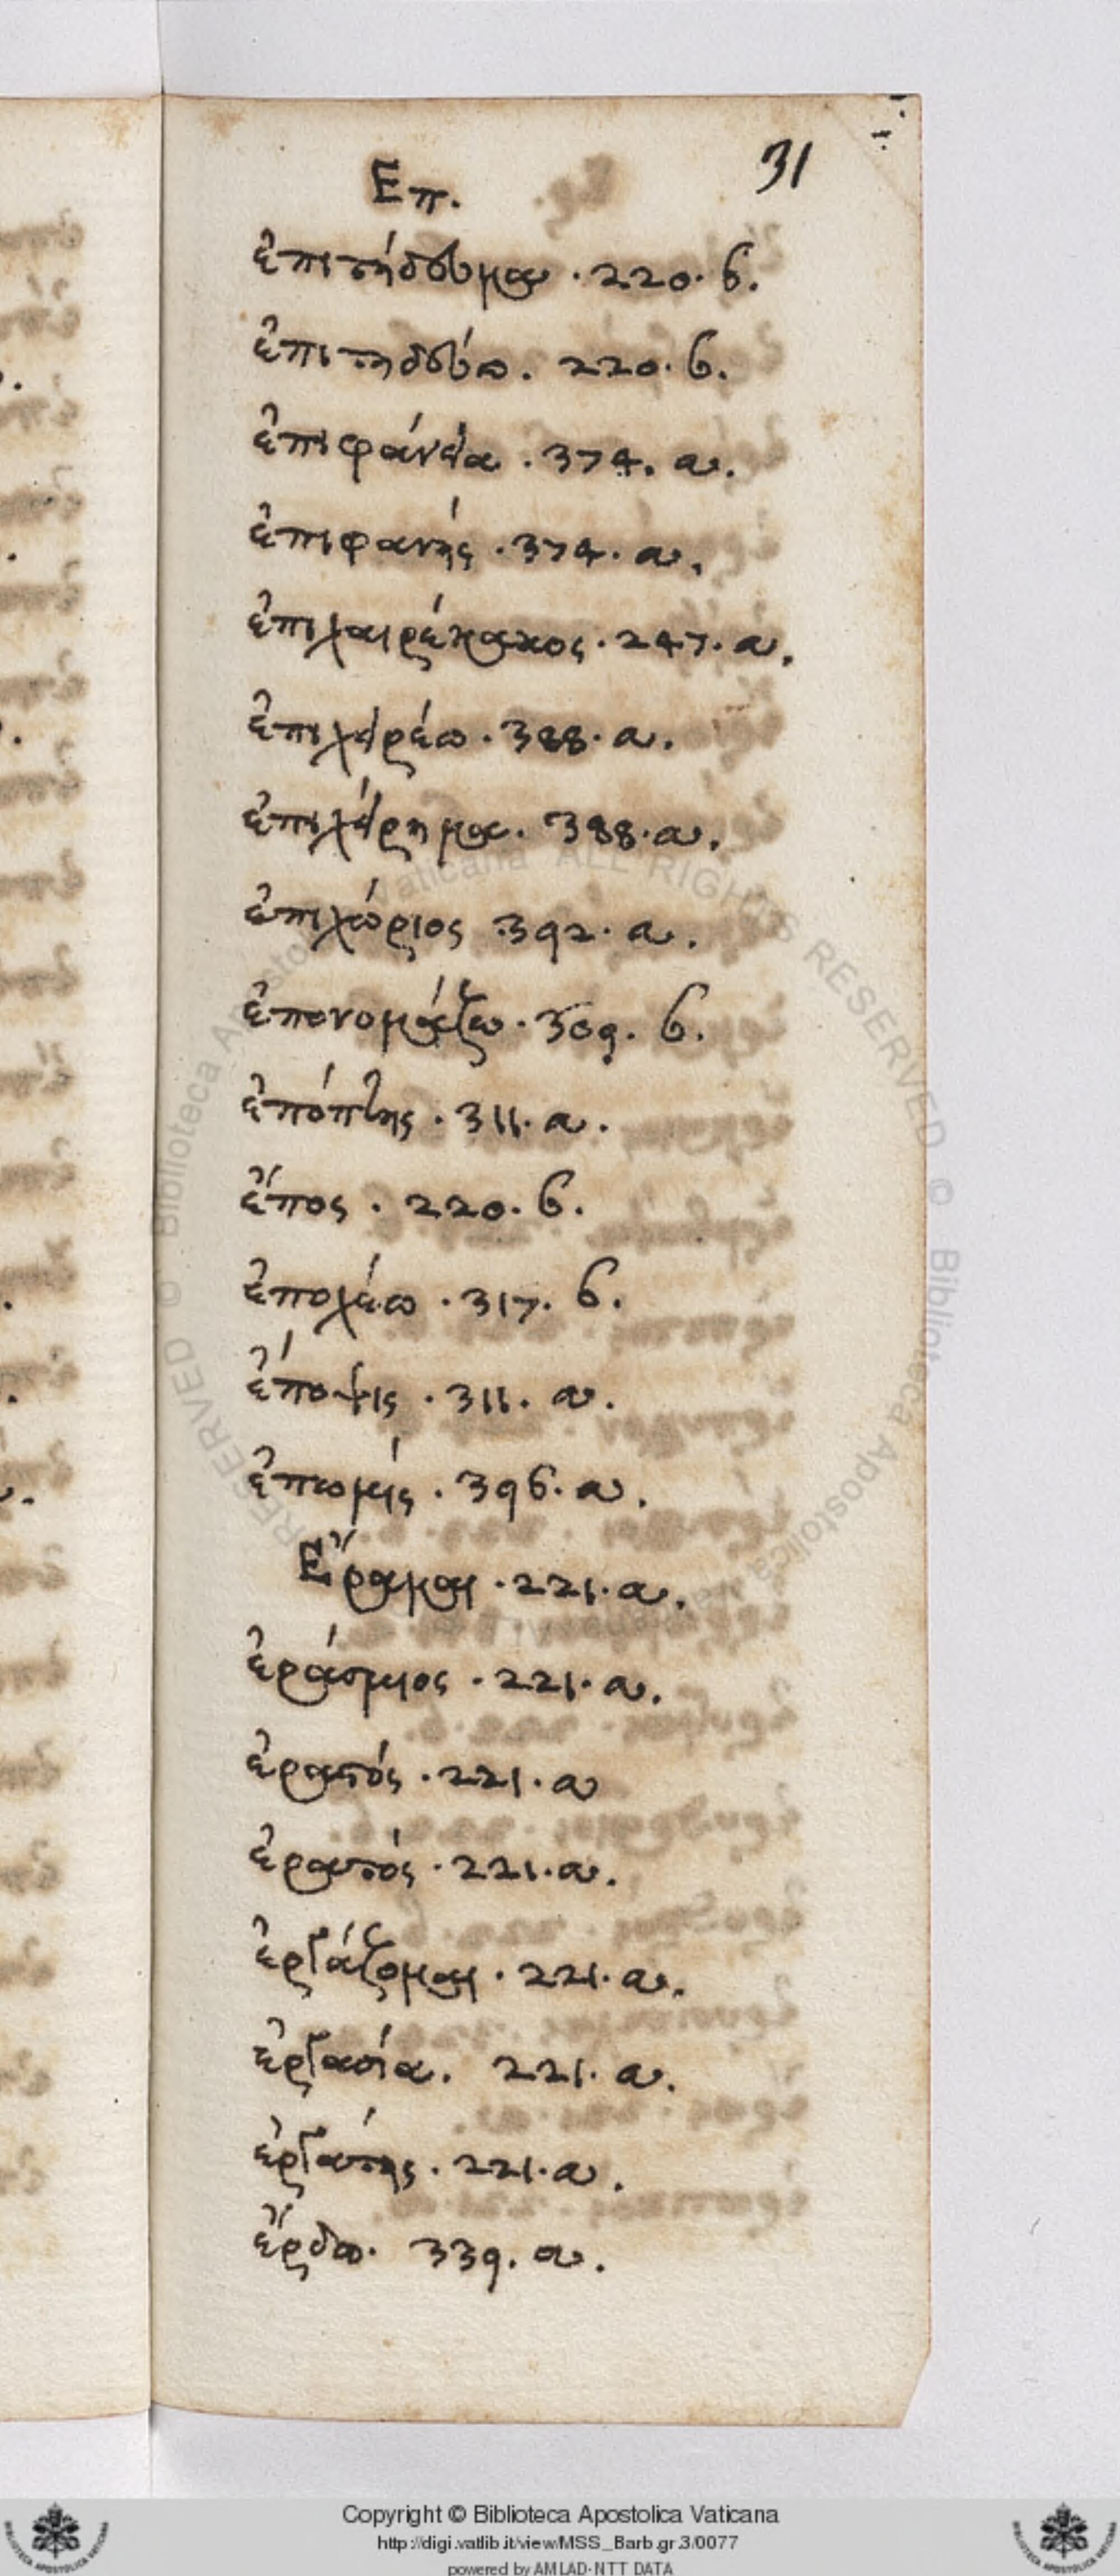 31
Επ.
ἐπιτήδευμα . 220. b.
ἐπιτηδεύω . 220. b.
ἐπιφάνεια . 374. a.
ἐπιφανής . 374. a.
ἐπιχαιρέκακος . 247. a.
ἐπιχειρέω . 388. a.
ἐπιχείρημα . 388. a.
ἐπιχώριος 392. a.
ἐπονομάζω . 309. b.
ἐπόπτης . 311. a.
ἔπος . 220. b.
ἐποχέω . 317. b.
ἔποψις . 311. a.
ἐπωμίς . 396. a.
Ἔραμαι . 221. a.
ἐράσμιος . 221. a.
ἐραστός . 221. a
ἐρατός . 221. a.
ἐργάζομαι . 221. a.
ἐργασία . 221. a.
ἐργάτης . 221. a.
ἔρδω . 339. a.
Copyright © Biblioteca Apostolica Vaticana
http://digi.vatlib.it/view/MSS_Barb.gr.3/0077
powered by AMLAD-NTT DATA